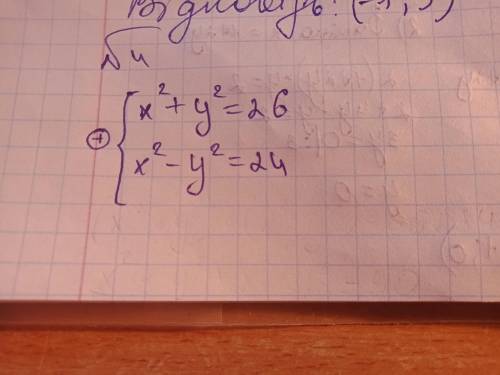 Відповідь: (-1; 5)
№4
⊕ { x² + y² = 26
x² - y² = 24